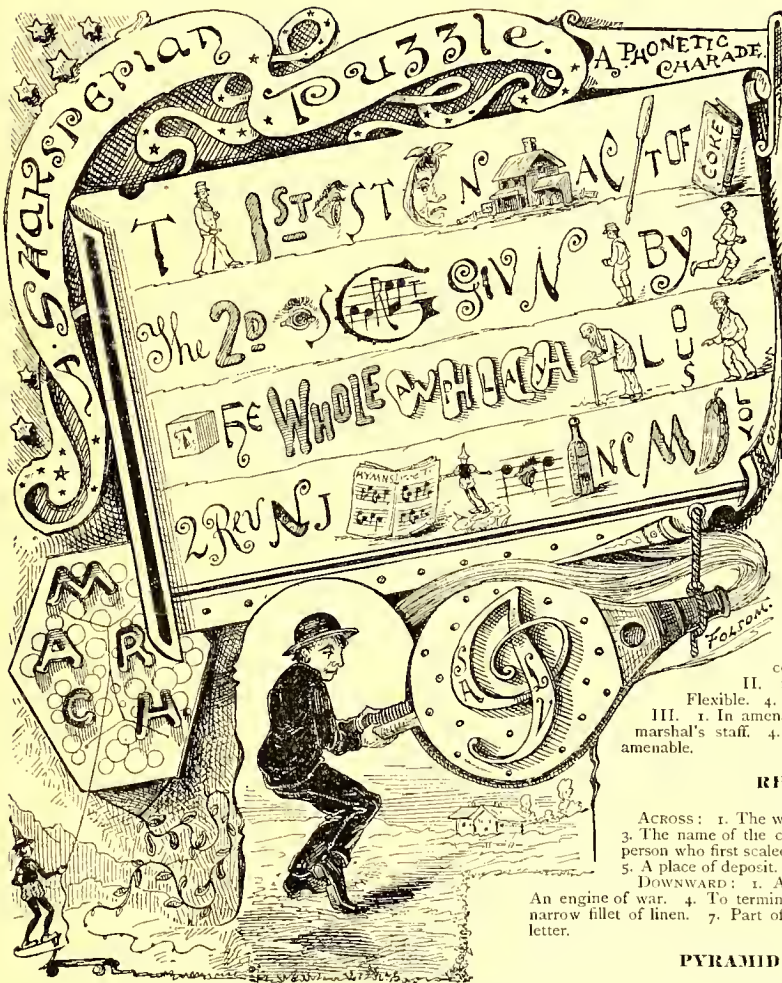 A SHAKSPERIAN PUZZLE.
A PHONETIC CHARADE.
T 1ST ST N AC T OF COKE
The 2D S GIV N BY
T HE WHOLE L OUS
2 REV N J HYMNS N C M YOF
MARCH
FOLSOM.
II.
Flexible. 4.
III. 1. In amen
marshal's staff. 4.
amenable.
ACROSS: 1. The w
3. The name of the c
person who first scaled
5. A place of deposit.
DOWNWARD: 1. A
An engine of war. 4. To termin
narrow fillet of linen. 7. Part of
letter.
PYRAMID